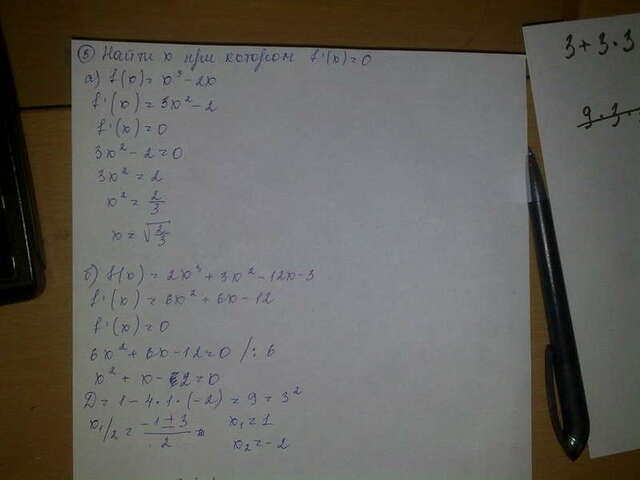 ③ Найти x при котором f'(x)=0
а) f(x) = x³ - 2x
f'(x) = 3x² - 2
f'(x) = 0
3x² - 2 = 0
3x² = 2
x² = 2/3
x = √2/3
б) f(x) = 2x³ + 3x² - 12x - 3
f'(x) = 6x² + 6x - 12
f'(x) = 0
6x² + 6x - 12 = 0 /: 6
x² + x - 2 = 0
Д = 1 - 4·1·(-2) = 9 = 3²
x1/2 = -1±3/2 = x₁ = 1
x₂ = -2
3 + 3·3
9·3·